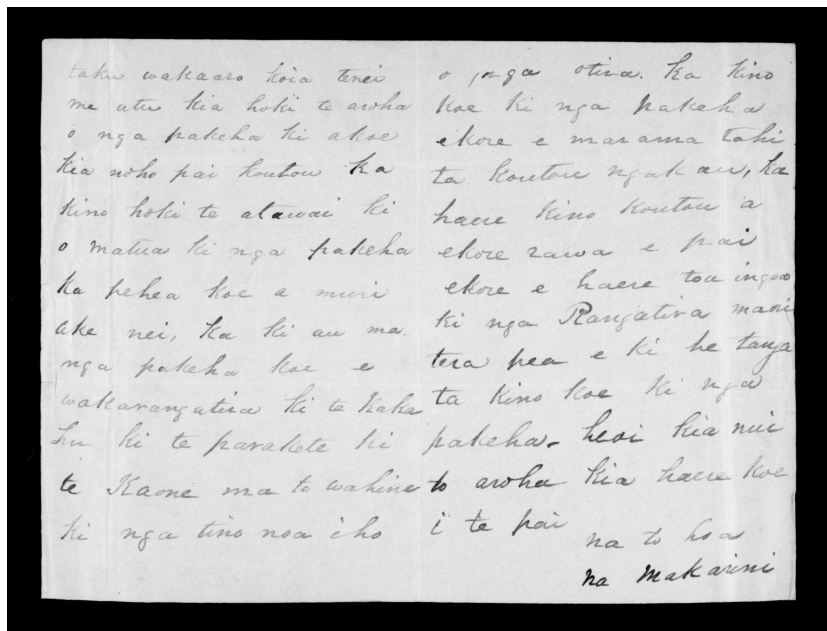 taku wakaaro koia tenei
me atu kia hoki te aroha
o nga pakeha ki akoe
kia noho pai koutou ka
kino hoki te atawai ki
o matua ki nga pakeha
ka pehea koe a muri
ake nei, ka ki au ma
nga pakeha koe e
wakarangatira ki te kaka
hu ki te paraikete ki
te Kaone ma to wahine
ki nga tino noa iho
o nga otira. ka kino
koe ki nga pakeha
ekore e marama tahi
ta koutou ngakau, ka
haere kino koutou a
ekore rawa e pai
ekore e haere tou ingoa
ki nga Rangatira maori
tera pea e ki he tangata
ta kino koe ki nga
pakeha. heoi kia nui
to aroha kia haere koe
i te pai
na to hoa
na Makarini